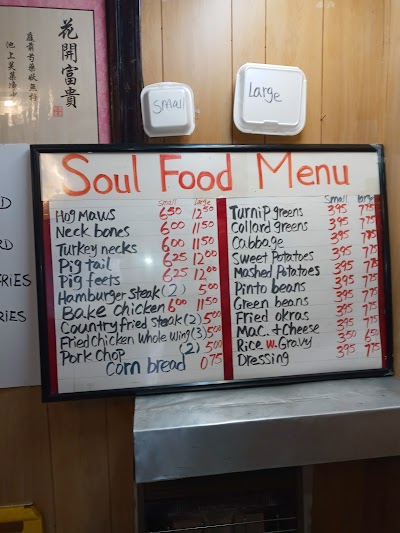 花開富貴
庭前芍藥妖無格
池上芙蕖淨少
Small
Large
D
RD
FRIES
RIES
Soul Food Menu
small large
Hog maws 6.50 12.50
Neck bones 6.00 11.50
Turkey necks 6.00 11.50
Pig tail 6.25 12.00
Pig feets 6.25 12.00
Hamburger steak (2) 5.00
Bake chicken 6.00 11.50
Country fried steak (2) 5.00
Fried chicken whole wing (3) 5.00
Pork chop (2) 5.00
Corn bread 0.75
Small large
Turnip greens 3.95 7.75
Collard greens 3.95 7.75
Cabbage 3.95 7.75
Sweet Potatoes 3.95 7.75
Mashed Potatoes 3.95 7.75
Pinto beans 3.95 7.75
Green beans 3.95 7.75
Fried okras 3.95 7.75
Mac.. + Cheese 3.95 7.75
Rice w. Gravy 3.50 6.50
Dressing 3.95 7.75